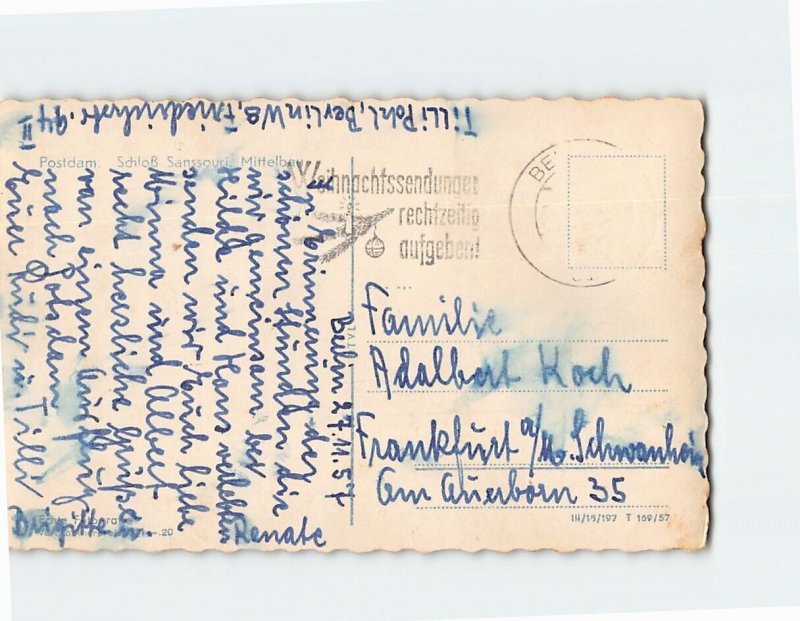 Tilli Pohl, Berlin W8, Friedrichstr. 94 II
Postdam. Schloß Sanssouci, Mittelbau
Berlin 27.11.57
In Erinnerung der
schönen Stunden die
wir gemeinsam bei
Hilde und Hans verlebten
senden wir Euch liebe
Minna und Albert
recht herzliche Grüße
von einem Ausflug
nach Potsdam
Eurer Rudi u. Tilli
Brigitte u. Renate
Weihnachtssendungen
rechtzeitig
aufgeben!
BE
Familie
Adalbert Koch
Frankfurt a/M. Schwanheim
Am Auerborn 35
III/18/197 T 169/57